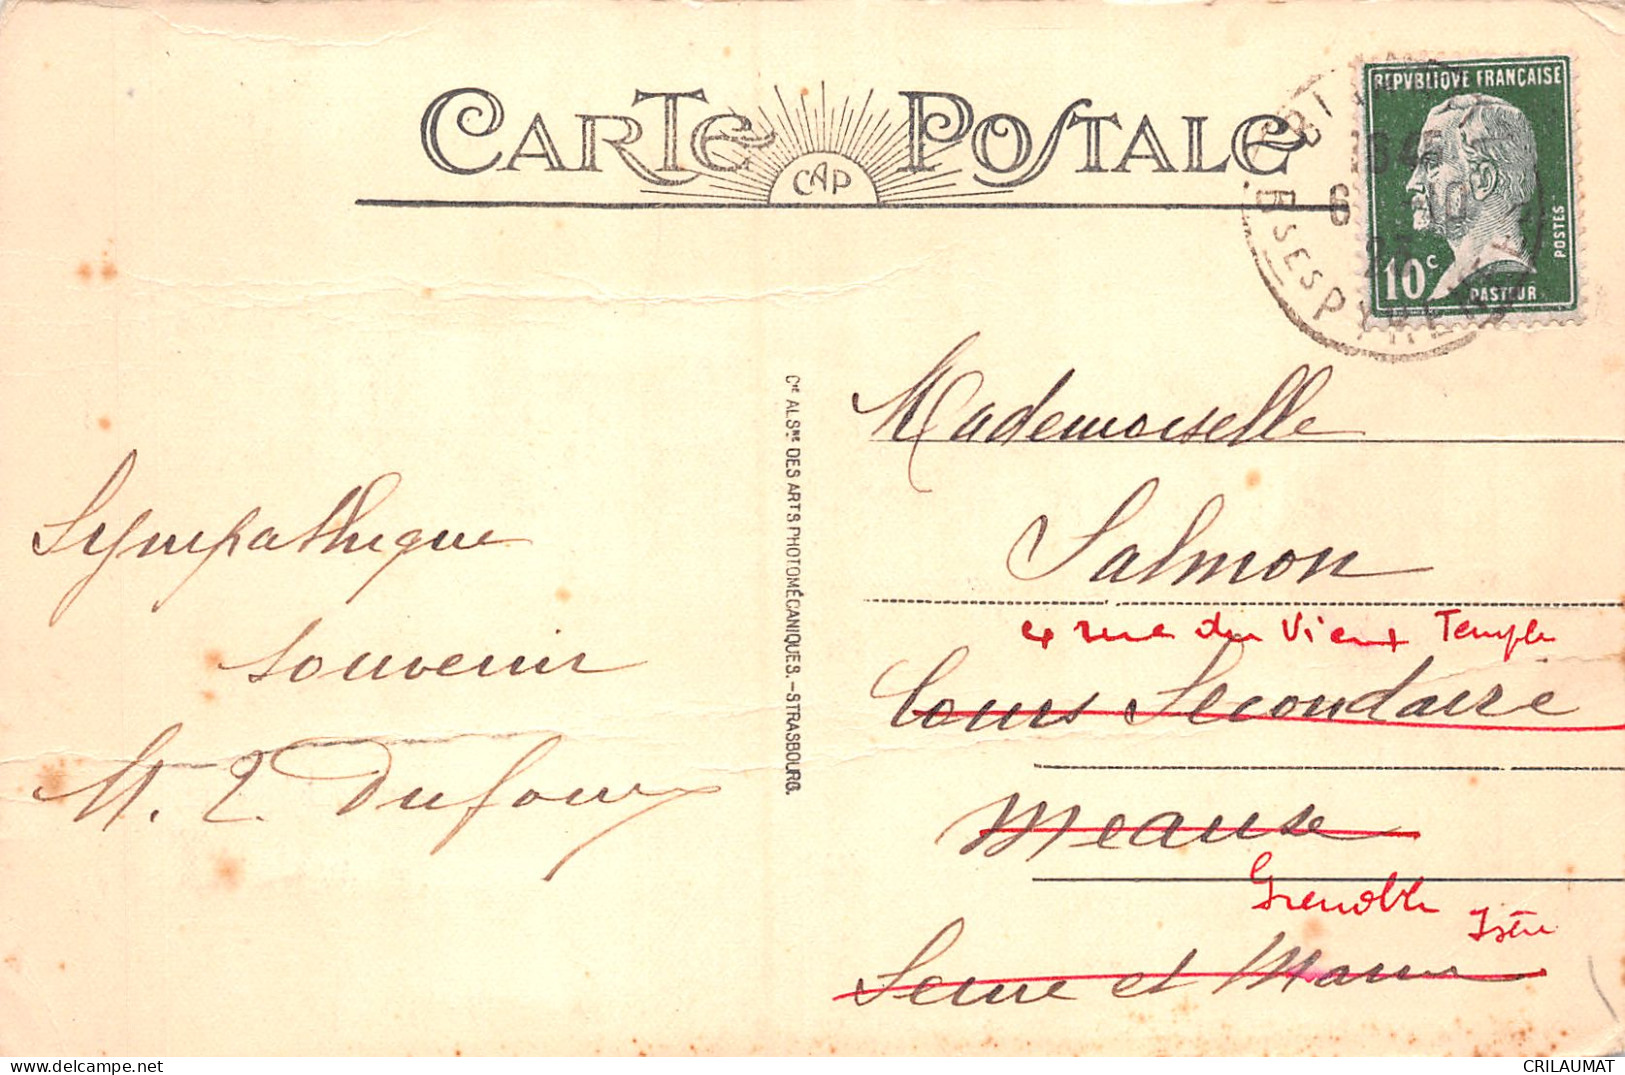 CARTE POSTALE
CAP
REPVBLIQVE FRANÇAISE
10c
POSTES
PASTEUR
6 10
Bses PYRENEES
Cie ALSne DES ARTS PHOTOMÉCANIQUES.-STRASBOURG.
Mademoiselle
Salmon
4 rue du Vieux Temple
Cours Secondaire
Meause
Grenoble Isère
Seine et Marne
Sympathique
souvenir
M. L. Dufour
delcampe.net
CRILAUMAT